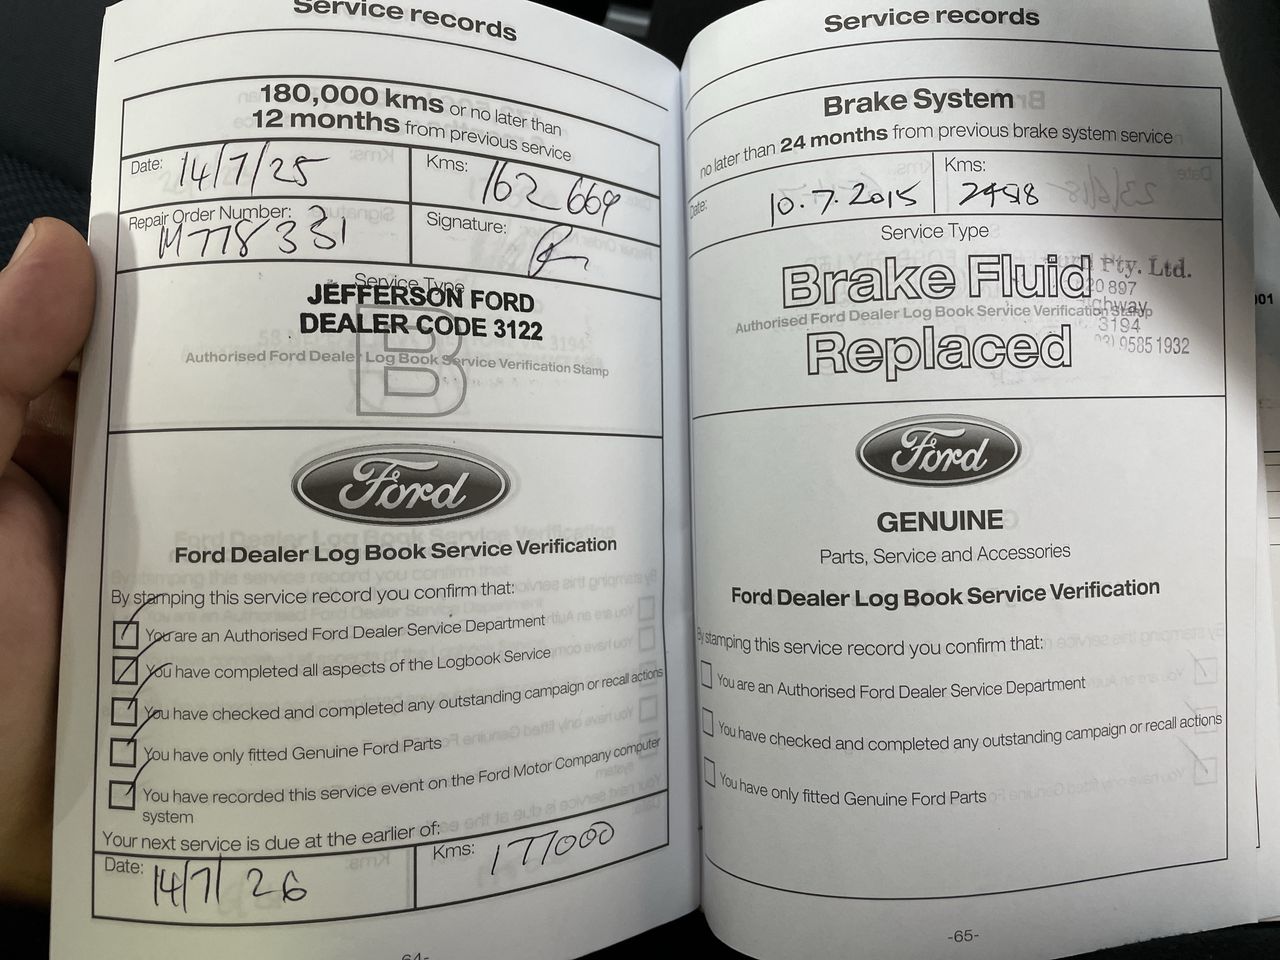 Service records
180,000 kms or no later than
12 months from previous service
Date: 14/7/25
Kms: 162 669
Repair Order Number: M778331
Signature:
Service Type
JEFFERSON FORD
DEALER CODE 3122
B
Authorised Ford Dealer Log Book Service Verification Stamp
Ford
Ford Dealer Log Book Service Verification
By stamping this service record you confirm that:
You are an Authorised Ford Dealer Service Department
You have completed all aspects of the Logbook Service
You have checked and completed any outstanding campaign or recall actions
You have only fitted Genuine Ford Parts
You have recorded this service event on the Ford Motor Company computer
system
Your next service is due at the earlier of:
Date: 14/7/26
Kms: 177000
64-
Service records
Brake System
no later than 24 months from previous brake system service
Date: 10.7.2015
Kms:
Service Type
Brake Fluid
Pty. Ltd.
20 897
Authorised Ford Dealer Log Book Service Verification Stamp
3194
Replaced
9585 1932
Ford
GENUINE
Parts, Service and Accessories
Ford Dealer Log Book Service Verification
By stamping this service record you confirm that:
You are an Authorised Ford Dealer Service Department
You have checked and completed any outstanding campaign or recall actions
You have only fitted Genuine Ford Parts
-65-